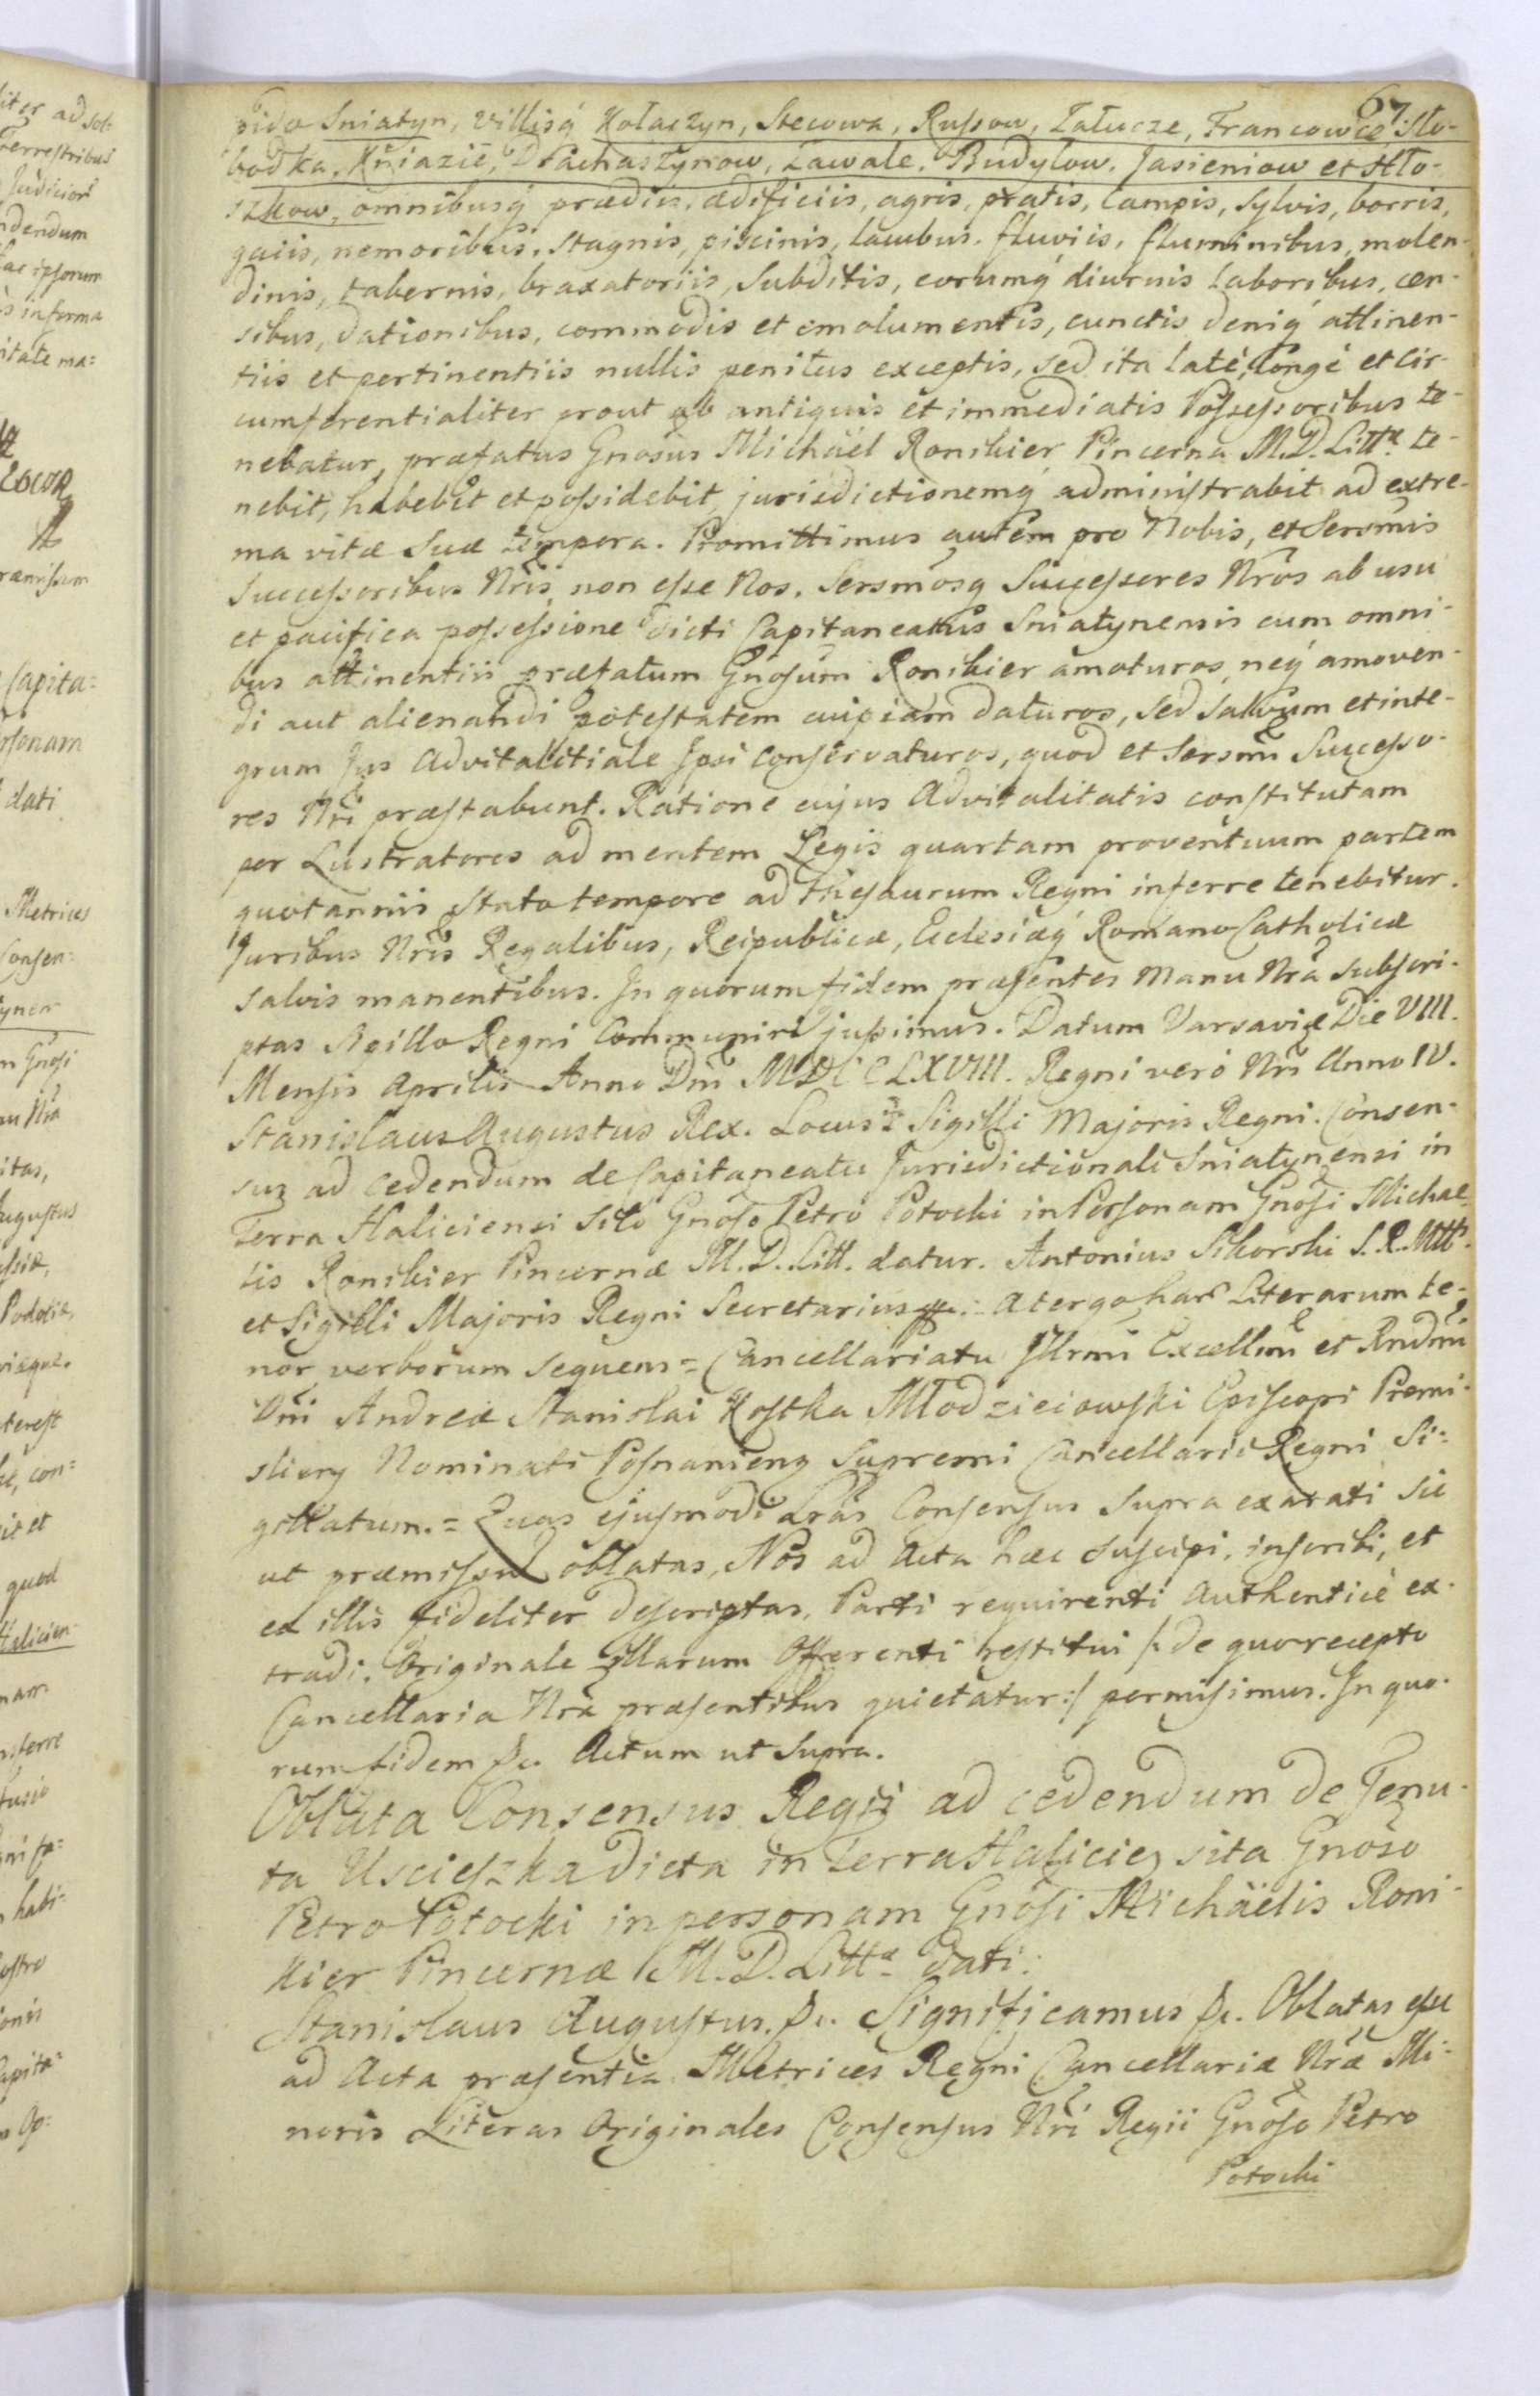 67.
pido Sniatyn, Villisq́ Kołaczyn, Stecowa, Russow, Załucze, Francowce Sło-
bodka, Kniazie, Drachasłynow, Zawale, Budylow, Jasieniow et Hło-
szkow, omnibusq́ prædiis, ædificiis, agris, pratis, Campis, Sylvis, borris,
gaiis, nemoribus, Stagnis, piscinis, lacubus, fluviis, fluminibus, molen-
dinis, tabernis, braxatoriis, Subditis, eorumq́ diurnis laboribus, cen-
sibus, dationibus, commodis et emolumentis, cunctis deniq́ attinen-
tiis et pertinentiis nullis penitus exceptis, sed ita latè, longè et Cir-
cumferentialiter prout ab antiquis et immediatis Possessoribus te-
nebatur, præfatus Gnosus Michäel Ronikier Pincerna M.D. Littæ te-
nebit, habebit et possidebit, jurisdictionemq́ administrabit ad extre-
ma vitæ Suæ tempora. Promittimus autem pro Nobis, et Sersmis
Successoribus Nris, non esse Nos, Sersmosq́ Successores Nros ab usu
et pacifica possessione dicti Capitaneatus Sniatynensis cum omni-
bus attinentiis præfatum Gnosum Ronikier amoturos, neq́ amoven-
di aut alienandi potestatem cuipiam daturos, sed salvum et inte-
grum Jus Advitalitiale Ipsi Conservaturos, quod et Sersmi Successo-
res Nri præstabunt. Ratione cujus Advitalitatis constitutam
per Lustratores ad mentem Legis quartam proventuum partem
quotannis stato tempore ad Thesaurum Regni inferre tenebitur.
Juribus Nris Regalibus, Reipublicæ, Eclesiæq́ Romano Catholicæ
salvis manentibus. In quorum fidem præsentes Manu Nra subscri-
ptas Sigillo Regni Communiri jussimus. Datum Varsaviæ Die VIII.
Mensis Aprilis Anno Dni MDCCLXVIII. Regni verò Nri Anno IV.
Stanislaus Augustus Rex. Locus Sigilli Majoris Regni. Consen-
sus ad cedendum de Capitaneatu Jurisdictionali Sniatynensi in
Terra Haliciensi sito Gnoso Petro Potocki in Personam Gnosi Michae-
lis Ronikier Pincernæ M.D. Litt. datur. Antonius Sikorski S.R.Mttis
et Sigilli Majoris Regni Secretarius. A tergo har Literarum te-
nor verborum sequens = Cancellariatu Illrmi Excellmi et Rndmi
Dni Andreæ Stanislai Kostka Młodzieiowski Episcopi Premi-
slieng Nominati Posnanieng Supremi Cancellarii Regni Si-
gillatum. = Quas ejusmodi Lras Consensus supra exarati sic
ut præmissum oblatas, Nos ad Acta hæc suscipi, inscribi, et
ex illis fideliter descriptas, Parti requirenti Authenticè ex-
tradi, Originale illarum Offerenti restitui /: de quo recepto
Cancellaria Nra præsentibus quietatur :/ permisimus. In quo-
rum fidem &c. Actum ut supra.
Oblata Consensus Regii ad cedendum de Tenu-
ta Uscieszka dicta in Terra Halicien sita Gnoso
Petro Potocki in personam Gnosi Michäelis Roni-
kier Pincernæ M.D. Littæ dati.
Stanislaus Augustus &c. Significamus &c. Oblatas esse
ad Acta præsentia Metrices Regni Cancellariæ Nræ Mi-
noris Literas Originales Consensus Nri Regii Gnoso Petro
Potocki